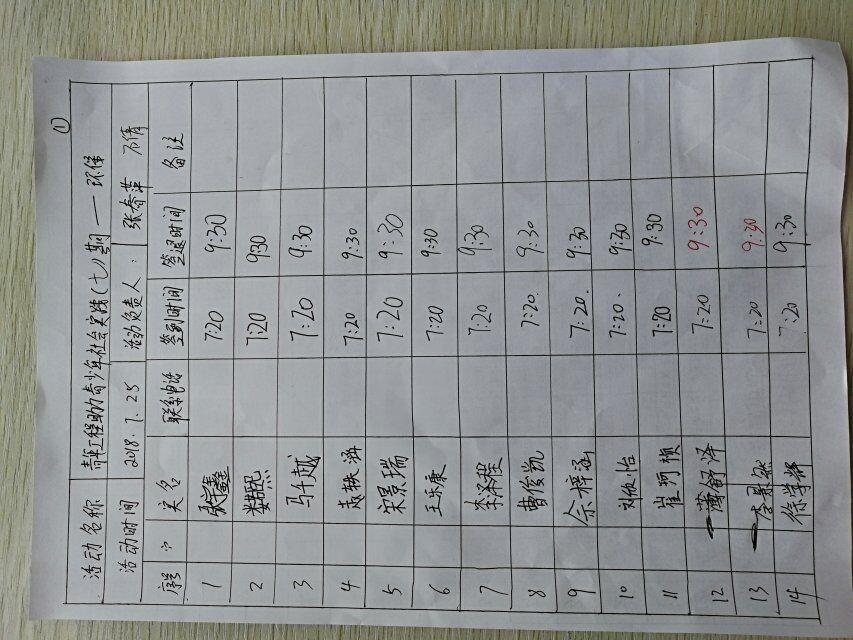 ①
活动名称 青年工程助力青少年社会实践(七)期——环保
活动时间 2018.7.25 活动负责人: 张春萍 不倩
序号 实名 联系电话 签到时间 签退时间 备注
1 7:20 9:30
2 7:20 930
3 马千越 7:20 9:30
4 7:20 9:30
5 宋景瑞 7:20 9:30
6 王乐康 7:20 9:30
7 李泽程 7:20 9:30
8 曹俊凯 7:20. 9:30
9 佘梓涵 7:20. 9:30
10 刘欣怡 7:20. 9:30
11 崔珂桢 7:20 9:30
12 薄舒泽 7:20 9:30
13 李昊燃 7:20 9:30
14 7:20 9:30